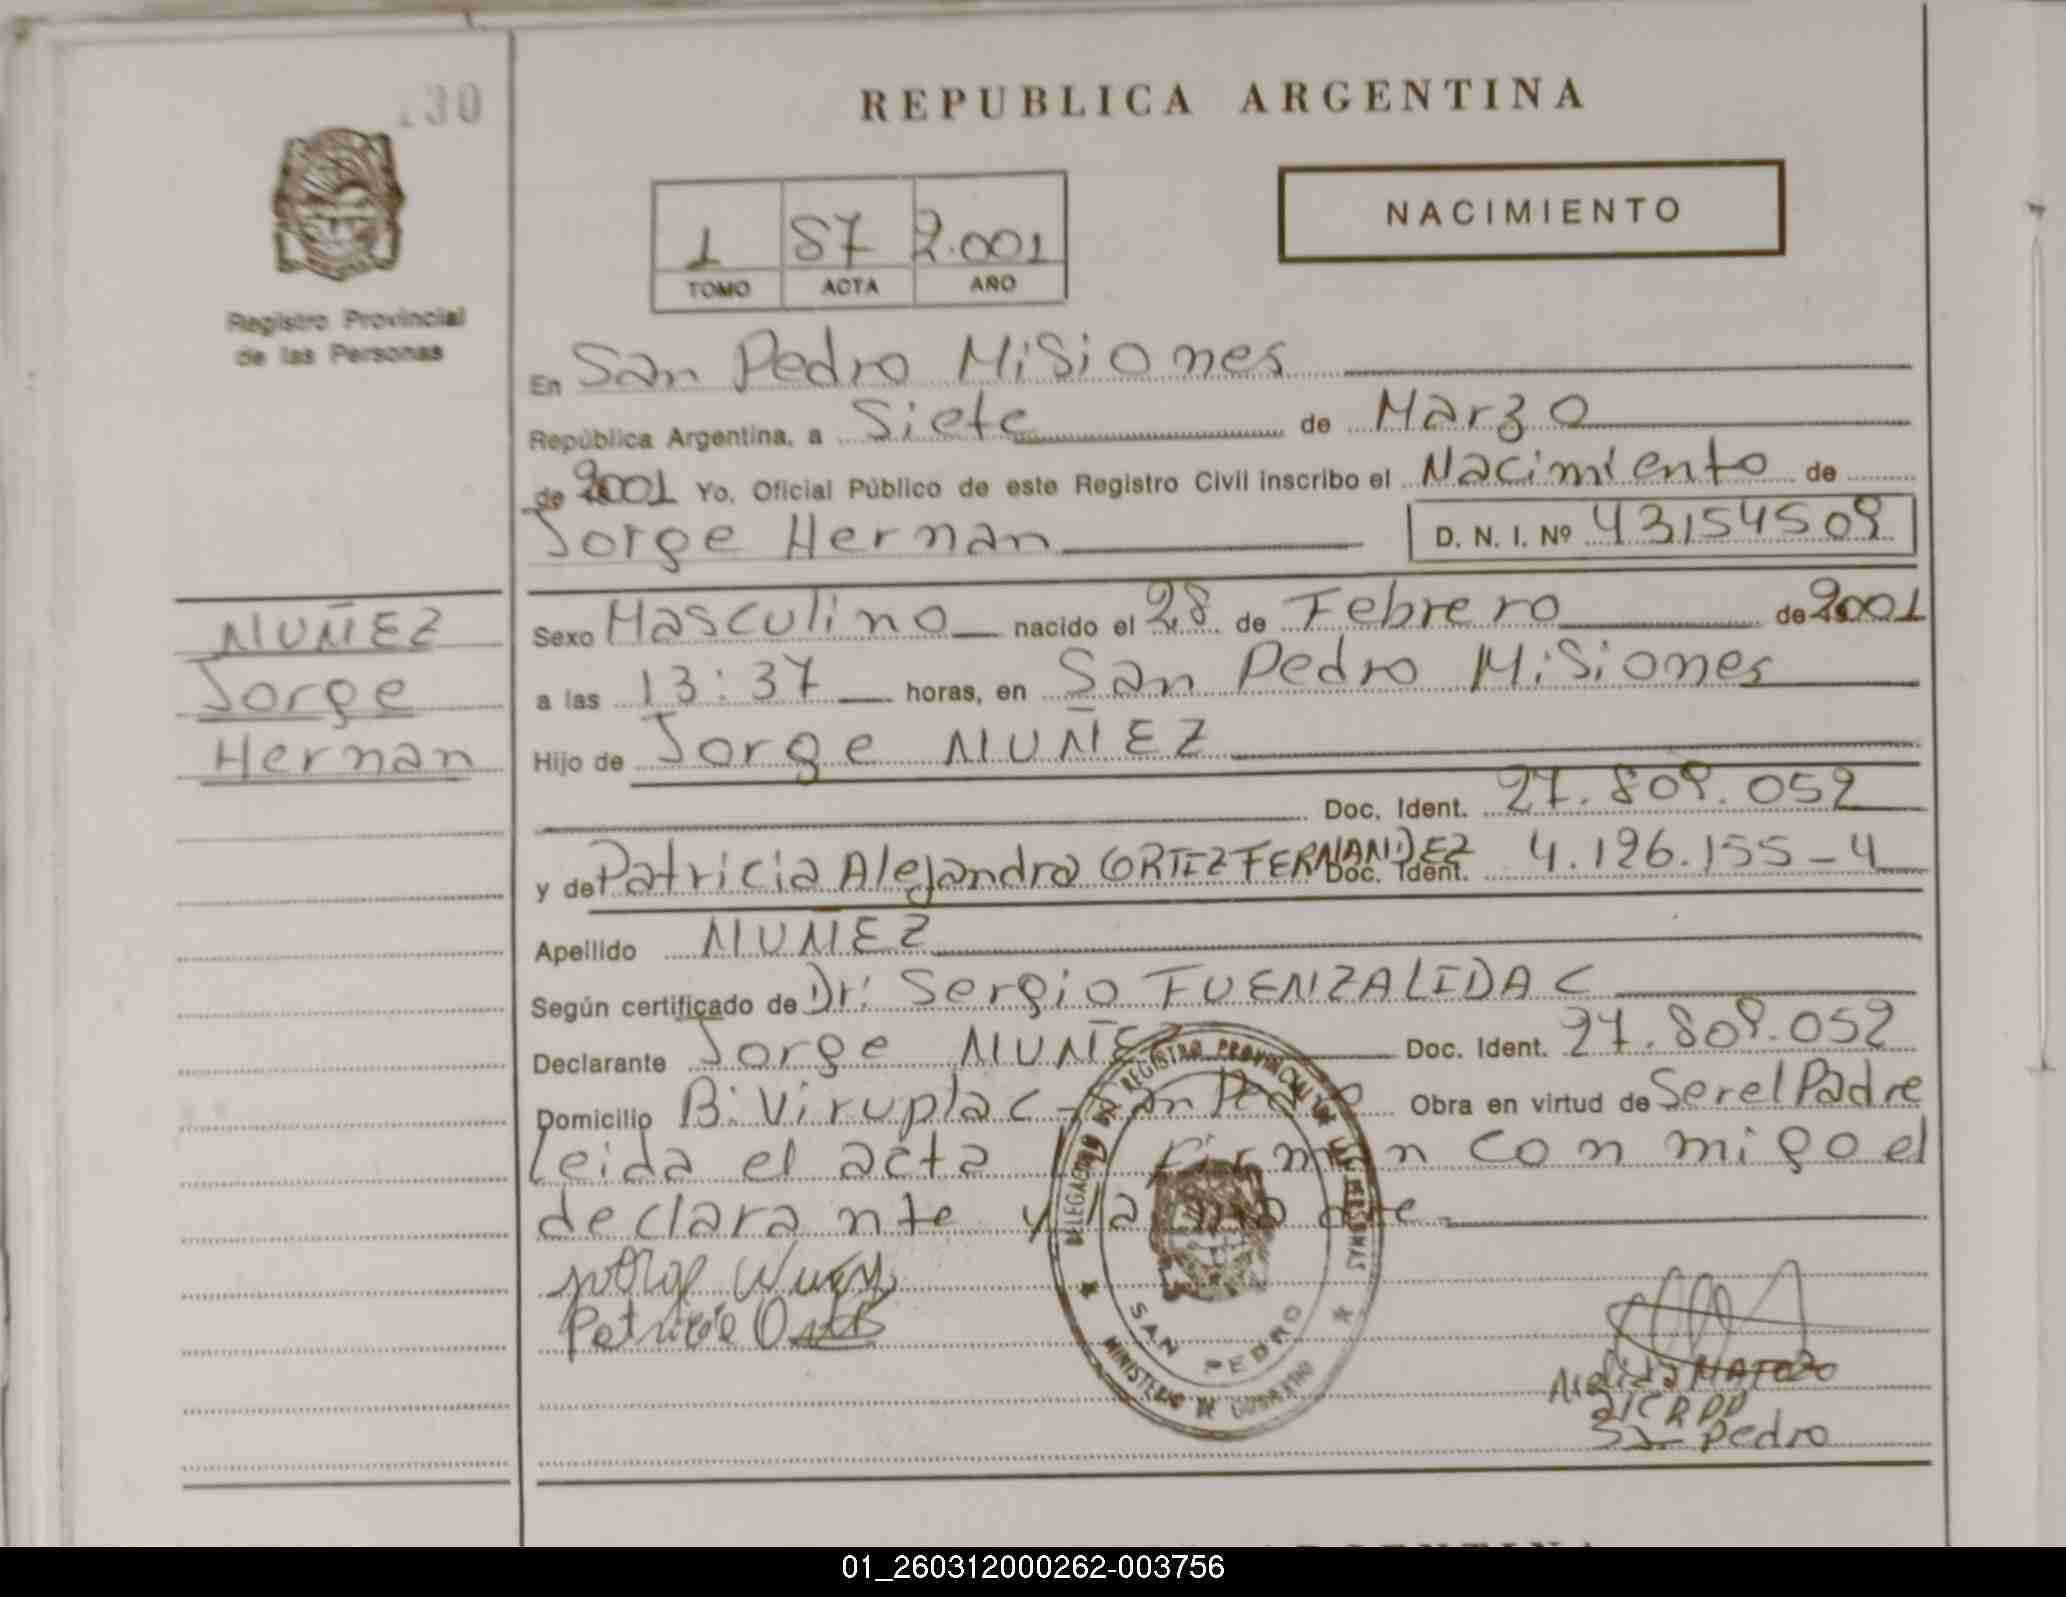 130
REPUBLICA ARGENTINA
NACIMIENTO
1 87 2.001
TOMO ACTA AÑO
Registro Provincial
de las Personas
En San Pedro Misiones
República Argentina, a Siete de Marzo
de 2001 Yo, Oficial Público de este Registro Civil inscribo el Nacimiento de
Jorge Hernan D. N. I. Nº 43154509
NUÑEZ
Jorge
Hernan
Sexo Masculino nacido el 28 de Febrero de 2001
a las 13:37 horas, en San Pedro Misiones
Hijo de Jorge NUÑEZ
Doc. Ident. 27.809.052
y de Patricia Alejandra CORTEZ FERNANDEZ Doc. Ident. 4.196.155-4
Apellido NUÑEZ
Según certificado de Dr: Sergio FUENZALIDA C
Declarante Jorge NUÑEZ Doc. Ident. 27.809.052
Domicilio B: Viruplac - San Pedro Obra en virtud de Ser el Padre
Leida el acta firman con migo el
declarante y la
DELEGACION DE REGISTRO PROVINCIAL DE LAS PERSONAS
SAN PEDRO
MINISTERIO DE GOBIERNO
Jorge Nuñez
Patricia
MATOZO
Pedro
ARGENTINA
01_260312000262-003756